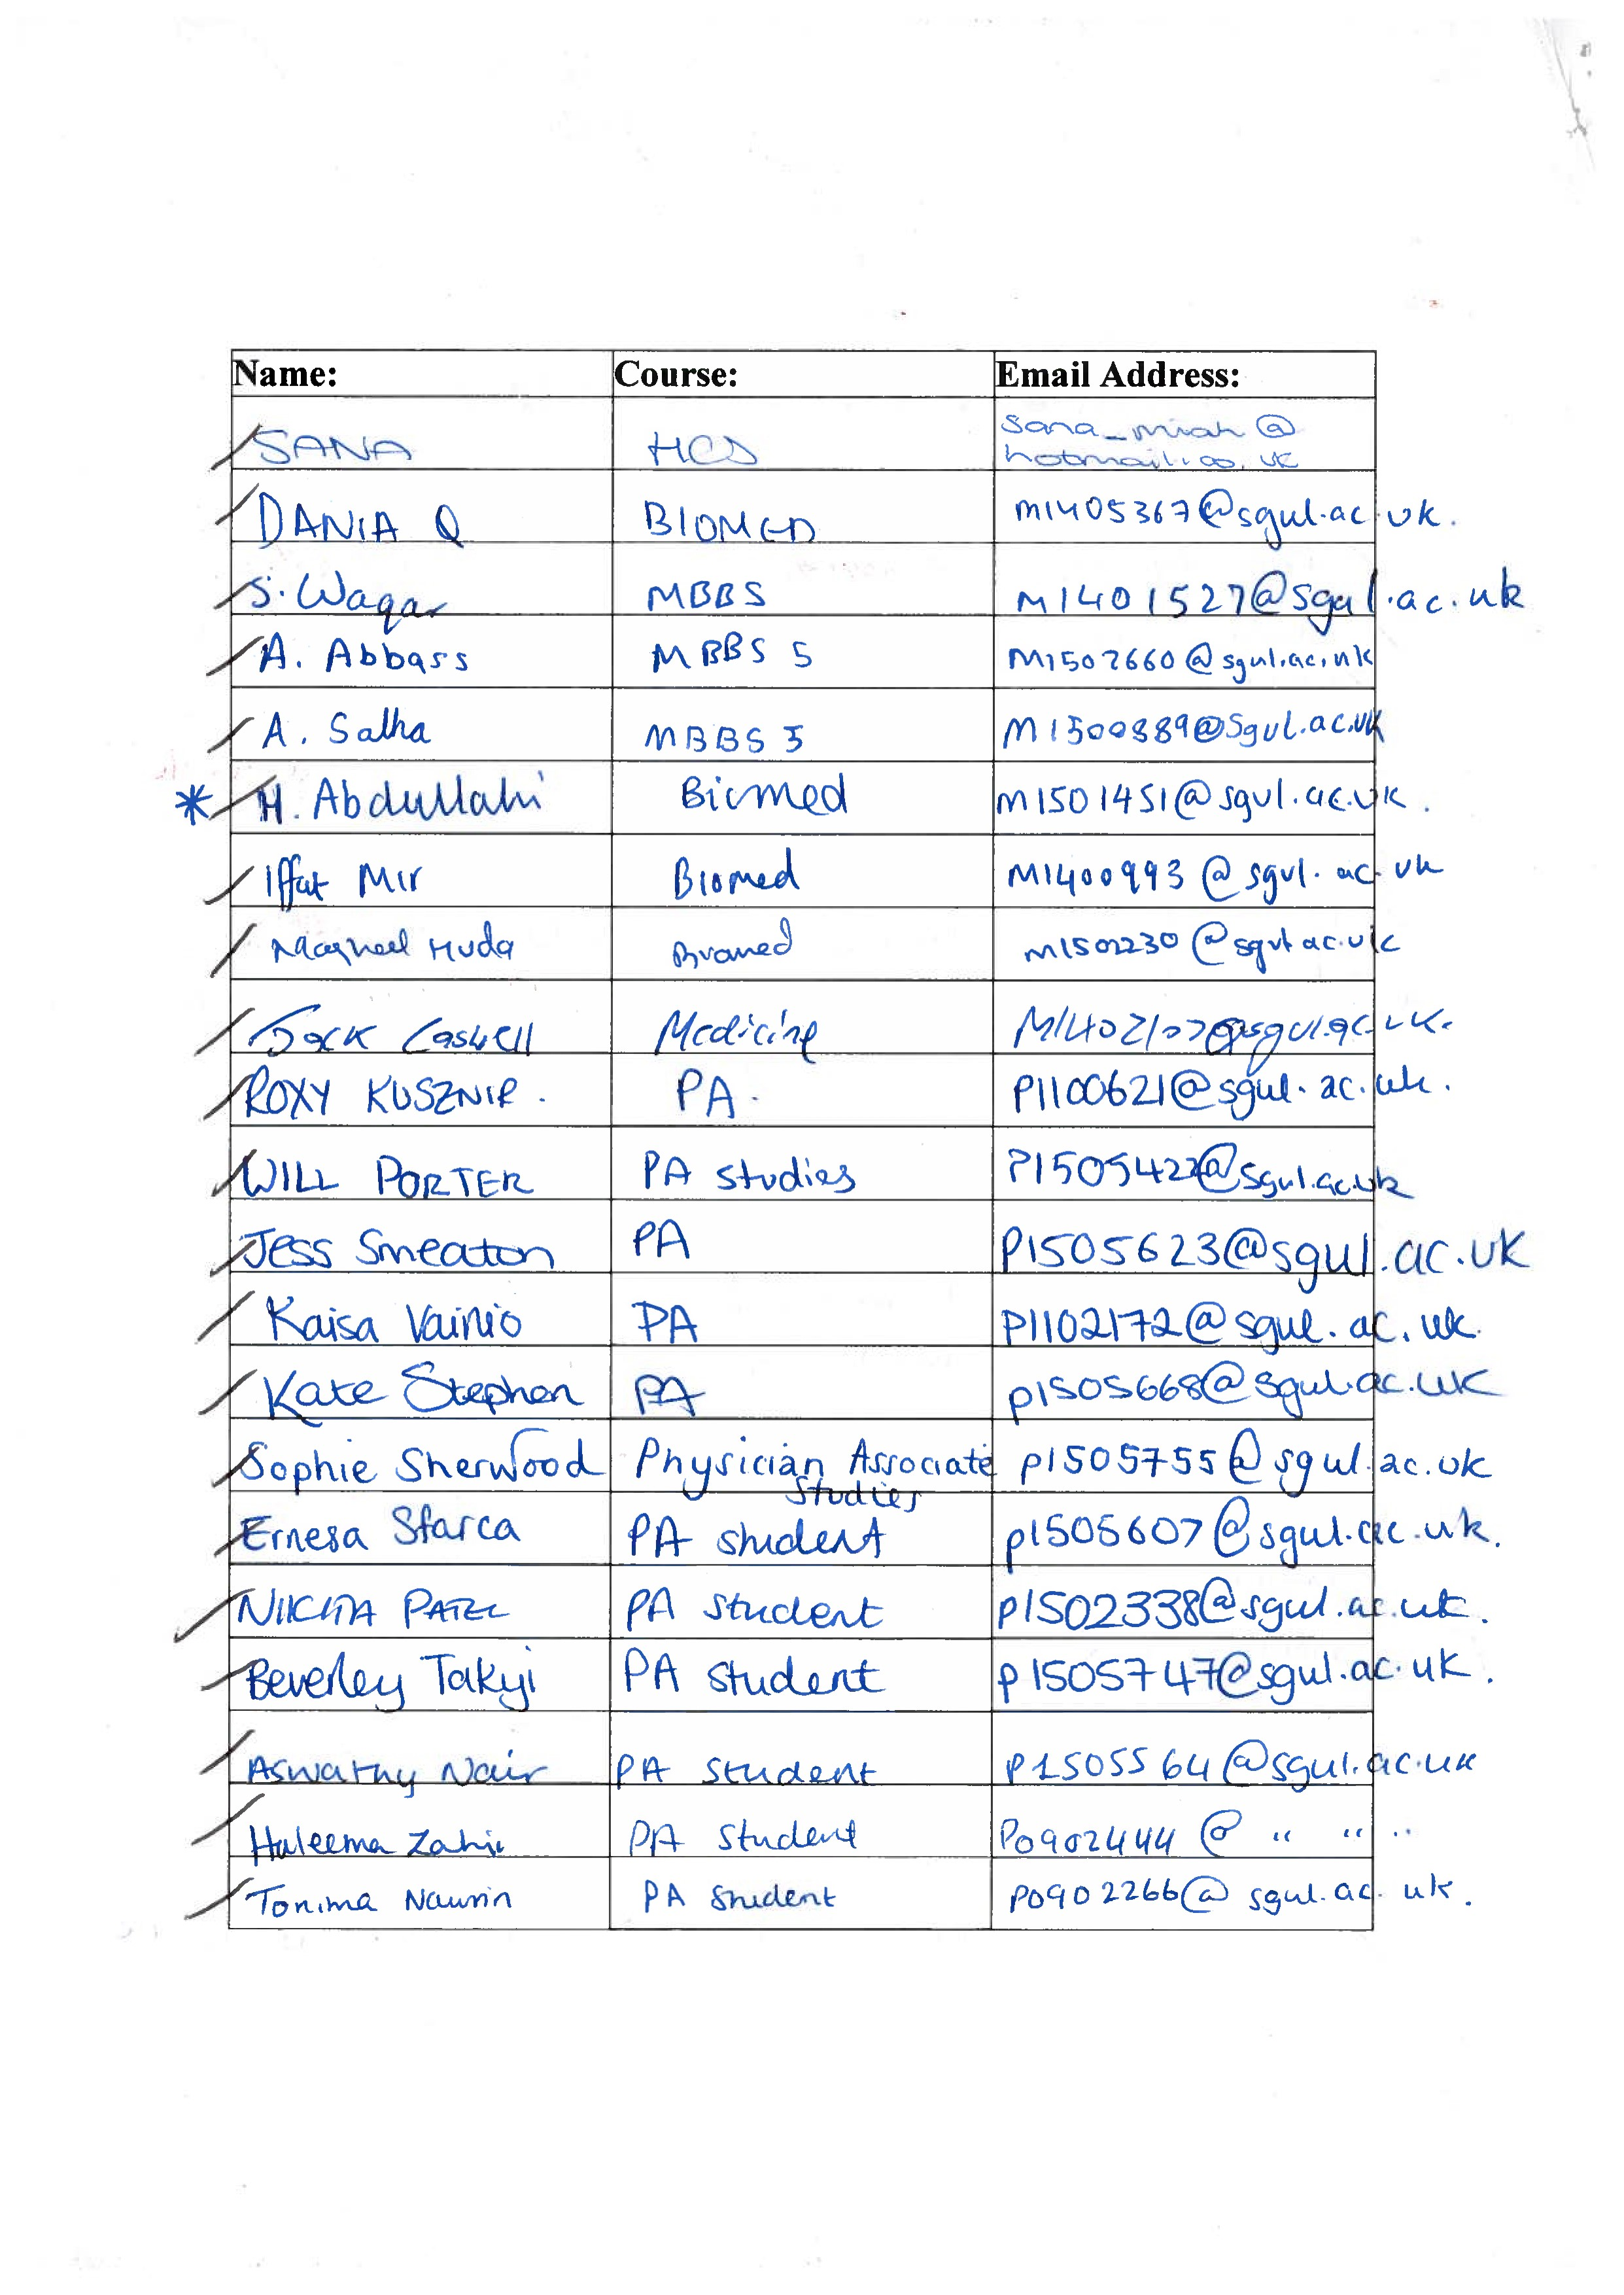 Name: Course: Email Address:
SANA HCS sana_miah@
hotmail.co.uk
DANIA Q BIOMED m1405367@sgul.ac.uk.
S. Waqar MBBS m1401527@sgul.ac.uk
A. Abbass MBBS 5 M1507660@sgul.ac.uk
A. Salha MBBS 5 M1500889@sgul.ac.uk
* H. Abdullahi Biomed m1501451@sgul.ac.uk.
Iffat Mir Biomed M1400993@sgul.ac.uk
Huda Biomed @sgul.ac.uk
Jack Medicine
ROXY KUSZNIR. PA. P1100621@sgul.ac.uk.
WILL PORTER PA studies P1505422@sgul.ac.uk
JESS Smeaton PA P1505623@sgul.ac.uk
Kaisa Vainio PA P1102172@sgul.ac.uk.
Kate Stephen PA p1505668@sgul.ac.uk
Sophie Sherwood Physician Associate p1505755@sgul.ac.uk
Studies
Ernesa Sfarca PA student p1505607@sgul.ac.uk.
NIKITA PATEL PA student p1502338@sgul.ac.uk.
Beverley Takyi PA student p1505747@sgul.ac.uk.
Aswathy Nair PA student P1505564@sgul.ac.uk
Haleema Zahir PA student P0902444@ " " "
Tonima Naurin PA student P0902266@sgul.ac.uk.